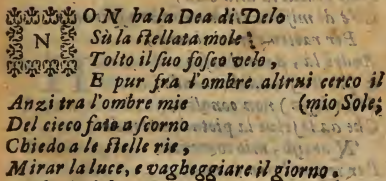 NON ha la Dea di Delo
Sù la stellata mole
Tolto il suo fosco velo,
E pur fra l'ombre altrui cerco il
Anzi tra l'ombre mie (mio Sole;
Del cieco fato a scorno
Chiedo a le stelle rie,
Mirar la luce, e vagheggiare il giorno.